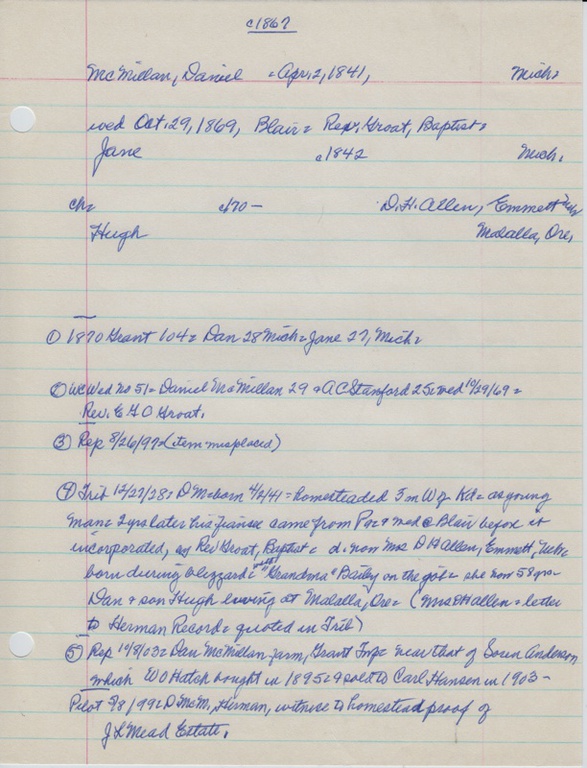 c1867
McMillan, Daniel = Apr. 2, 1841, Mich.
wed Oct. 29, 1869, Blair = Rev. Groat, Baptist =
Jane c1842 Mich.
ch = c/70 - D. H. Allen, Emmett Neb,
Hugh Malalla, Ore,
① 1870 Grant 104 = Dan 28 Mich = Jane 27, Mich =
② WC Wed no 51 = Daniel McMillan 29 + A C Stanford 25 = wed 10/29/69 =
Rev. E G O Groat.
③ Rep 8/26/97 = (item misplaced)
④ Trib 12/27/28 = D Mc = born 4/2/41 = homesteaded 5 m W of Kd = as young
man = 2 yrs later his fiancee came from Pa = + wed @ Blair before it
incorporated, by Rev Groat, Baptist = d. now Mrs D H Allen, Emmett, Neb =
born during blizzard = with "Grandma" Bailey on the job = she now 58 yrs =
Dan + son Hugh living at Malalla, Ore = (Mrs D H Allen = letter
to Herman Record = quoted in Trib)
⑤ Rep 10/8/03 = Dan McMillan farm, Grant Twp = near that of Soren Anderson
which W O Hatch bought in 1895 + sold to Carl Hansen in 1903 -
Pilot 3/8/99 = D McM, Herman, witness to homestead proof of
J L Mead Estate.